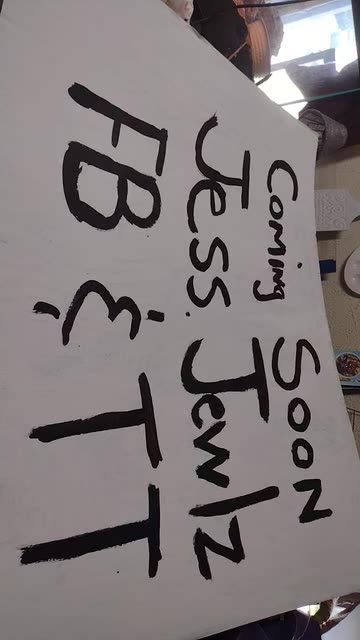 Coming SOON
Jess. Jewlz
FB & TT